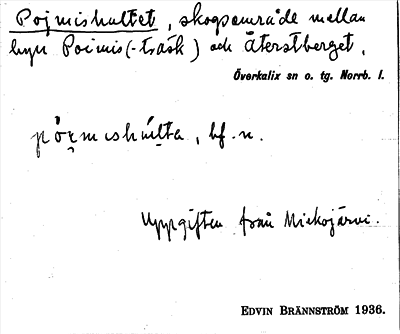 Pojmishultet, skogsområde mellan
byn Poimis(-träsk) och Återstberget.
Överkalix sn o. tg. Norrb. l.
bf. n.
Uppgiften från Miekojärvi.
EDVIN BRÄNNSTRÖM 1936.